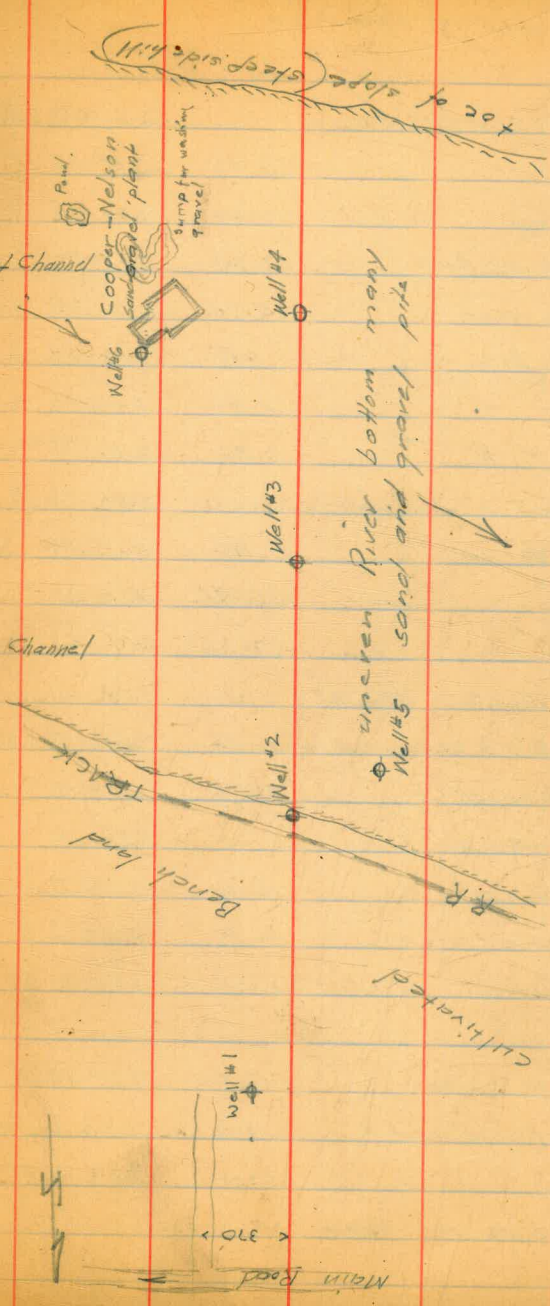 Toe of slope (steep side hill)
Pond.
Cooper-Nelson
Sand gravel plant
Sump for washing
gravel
Channel
Well #6
Well #4
uneven River bottom many
sand and gravel pits
Well #3
Channel
Well #5
Well #2
TRACK
R R
Bench land
cultivated
Well #1
370
Main Road